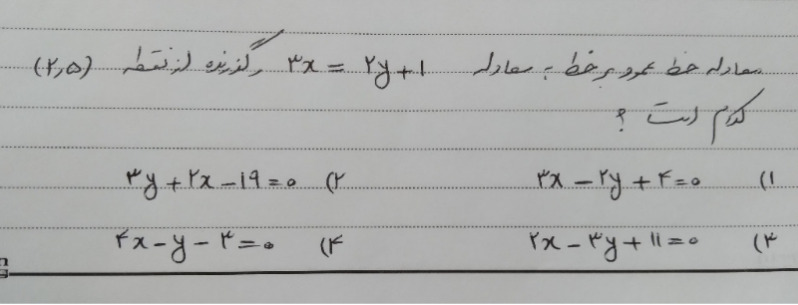 معادله خط عمود بر خط به معادله ۳x = ۲y + ۱ و گذرنده از نقطه (۲,۵)
کدام است ؟
۱) ۳x - ۲y + ۴ = ۰ ۲) ۳y + ۲x - ۱۹ = ۰
۳) ۲x - ۳y + ۱۱ = ۰ ۴) ۴x - y - ۳ = ۰